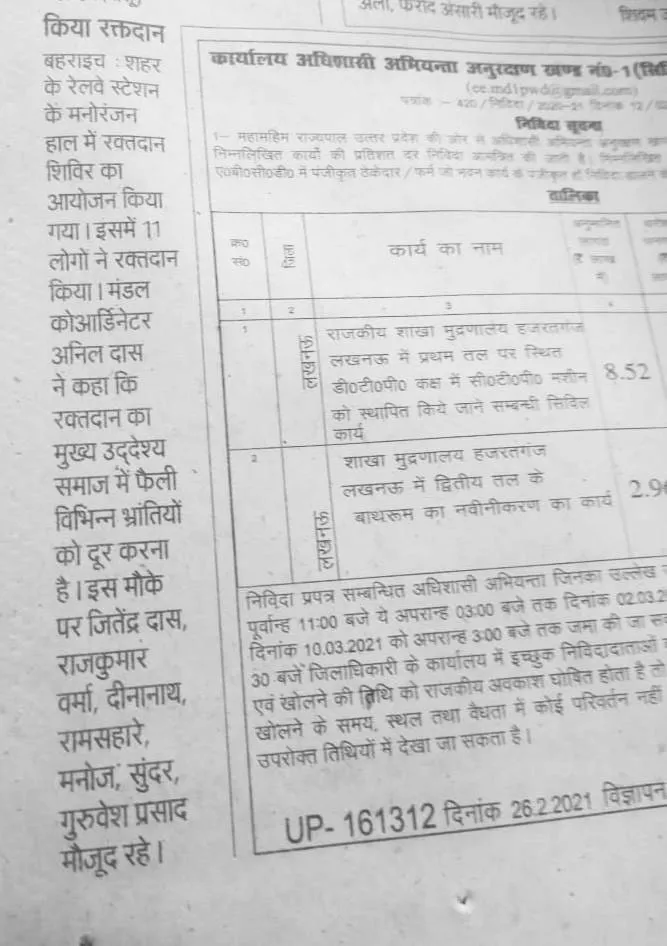 अली, फरीद अंसारी मौजूद रहे।
शिवम
किया रक्तदान
बहराइच : शहर
के रेलवे स्टेशन
के मनोरंजन
हाल में रक्तदान
शिविर का
आयोजन किया
गया। इसमें 11
लोगों ने रक्तदान
किया। मंडल
कोआर्डिनेटर
अनिल दास
ने कहा कि
रक्तदान का
मुख्य उद्देश्य
समाज में फैली
विभिन्न भ्रांतियों
को दूर करना
है। इस मौके
पर जितेंद्र दास,
राजकुमार
वर्मा, दीनानाथ,
रामसहारे,
मनोज, सुंदर,
गुरुवेश प्रसाद
मौजूद रहे।
कार्यालय अधिशासी अभियन्ता अनुरक्षण खण्ड नं0-1 (सि
(ee.md1pwd@gmail.com)
पत्रांक :- 420 / निविदा / 2020-21 दिनांक 12 /
निविदा सूचना
1- महामहिम राज्यपाल उत्तर प्रदेश की ओर से अधिशासी अभियन्ता अनुरक्षण
निम्नलिखित कार्यो की प्रतिशत दर निविदा आमंत्रित की जाती है। निम्नलिखित
ए0बी0सी0डी0 में पंजीकृत ठेकेदार / फर्म जो भवन कार्य के पंजीकृत हो निविदा डालने
तालिका
क्र0 सं0
कार्य का नाम
अनुमानित लागत
1 2 3 4
1 लखनऊ राजकीय शाखा मुद्रणालय हजरतगंज
लखनऊ में प्रथम तल पर स्थित
डी0टी0पी0 कक्ष में सी0टी0पी0 मशीन 8.52
को स्थापित किये जाने सम्बन्धी सिविल
कार्य
2 लखनऊ शाखा मुद्रणालय हजरतगंज
लखनऊ में द्वितीय तल के
बाथरूम का नवीनीकरण का कार्य 2.9
निविदा प्रपत्र सम्बन्धित अधिशासी अभियन्ता जिनका उल्लेख
पूर्वान्ह 11:00 बजे ये अपरान्ह 03:00 बजे तक दिनांक 02.03.2
दिनांक 10.03.2021 को अपरान्ह 3:00 बजे तक जमा की जा स
30 बजे जिलाधिकारी के कार्यालय में इच्छुक निविदादाताओं
एवं खोलने की तिथि को राजकीय अवकाश घोषित होता है तो
खोलने के समय, स्थल तथा वैधता में कोई परिवर्तन नहीं
उपरोक्त तिथियों में देखा जा सकता है।
UP- 161312 दिनांक 26.2.2021 विज्ञापन